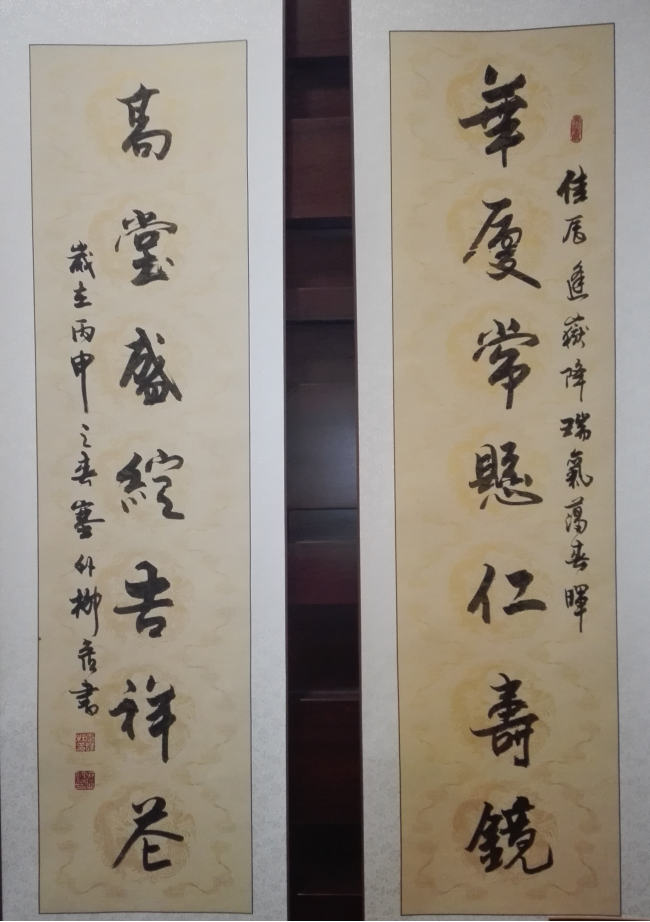 佳辰逢嶽降瑞氣藹春暉
華厦常懸仁壽鏡
高堂盛綻吉祥花
歲在丙申之春塞外柳書